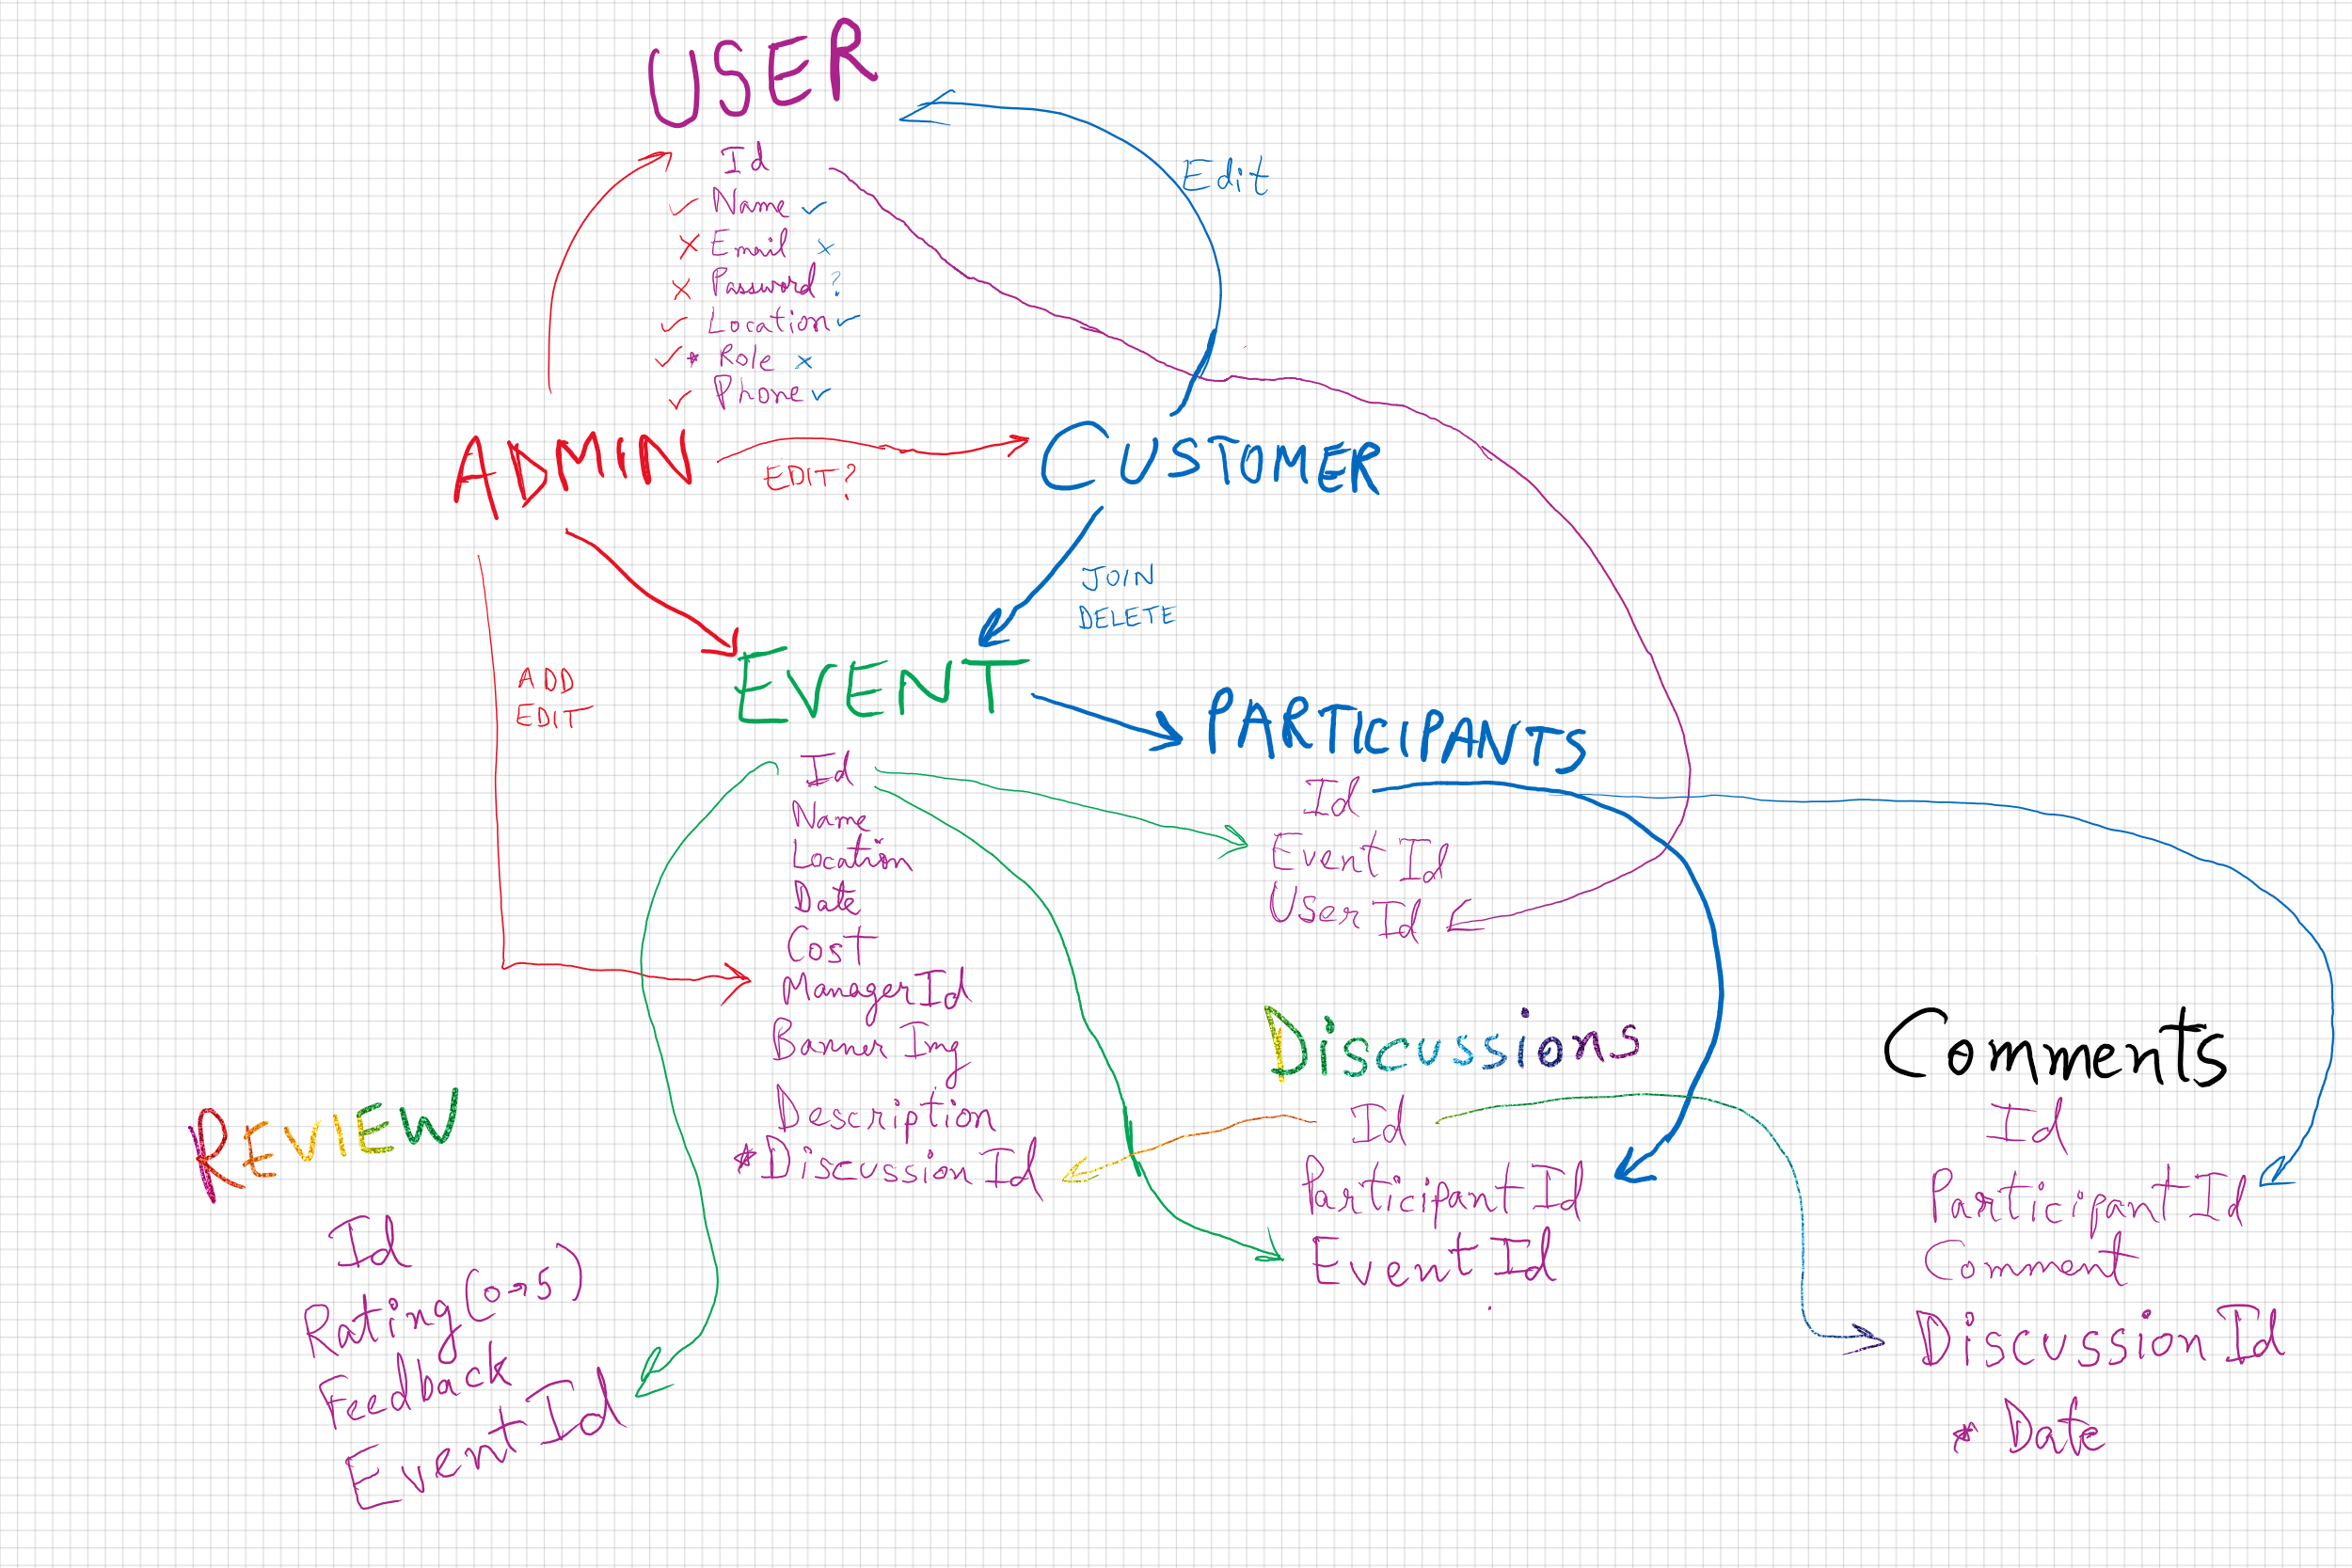 USER
Id
✓ Name ✓
× Email ×
× Password ?
✓ Location ✓
✓ * Role ×
✓ Phone ✓
Edit
ADMIN
EDIT?
CUSTOMER
JOIN
DELETE
ADD
EDIT
EVENT
Id
Name
Location
Date
Cost
Manager Id
Banner Img
Description
* Discussion Id
PARTICIPANTS
Id
Event Id
User Id
Discussions
Id
Participant Id
Event Id
Comments
Id
Participant Id
Comment
Discussion Id
* Date
REVIEW
Id
Rating (0→5)
Feedback
Event Id